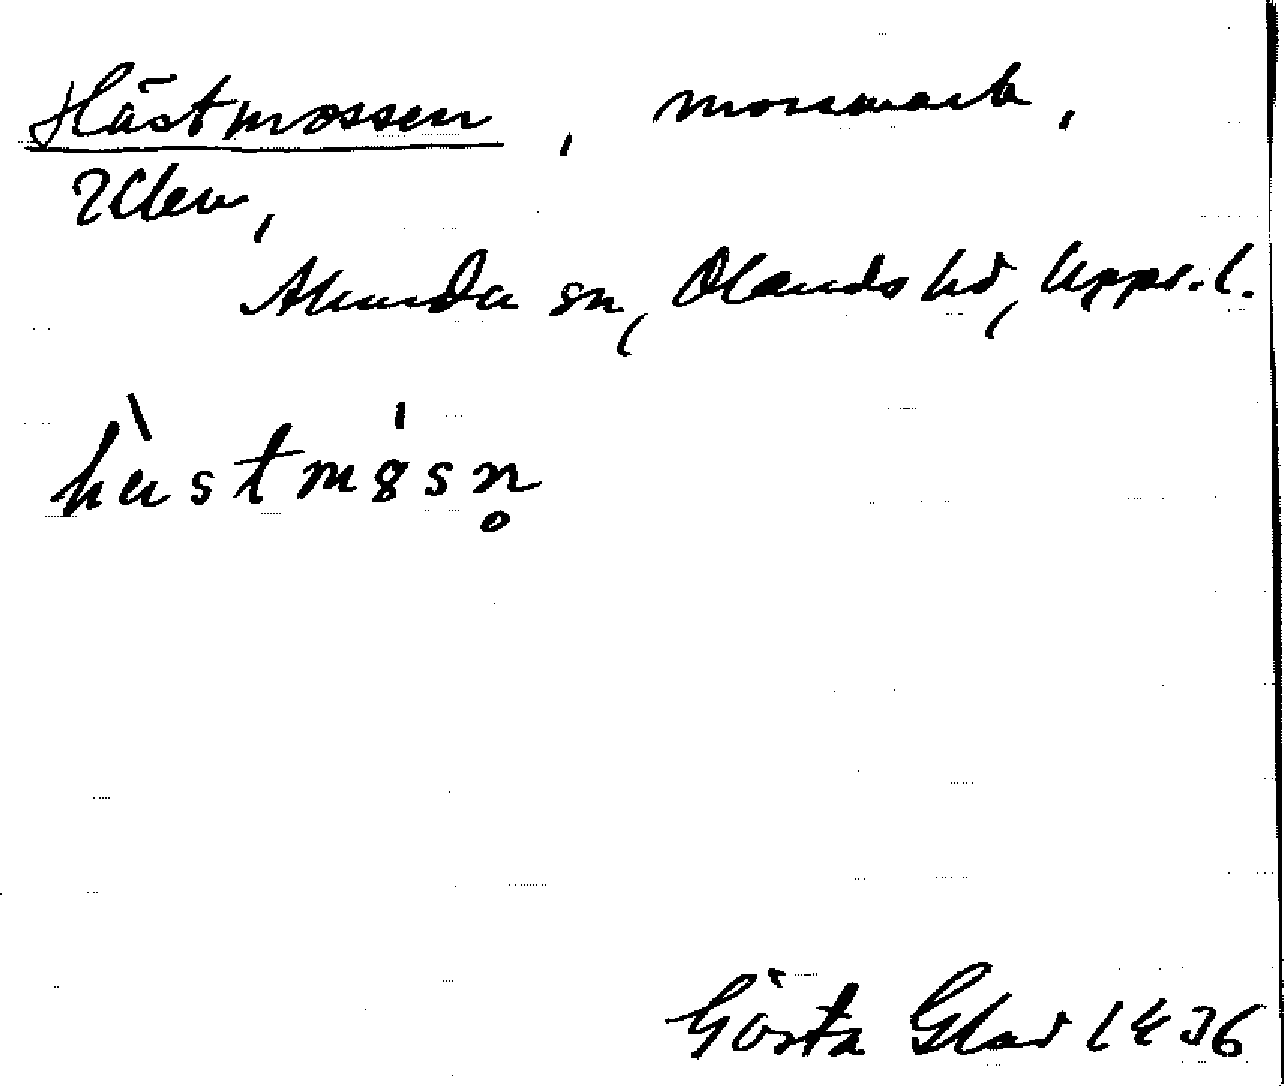 Hästmossen, mossmark,
Klev,
Alunda sn, Olands hd, Upps. l.
hästmosn̥
Gösta Glad 1936